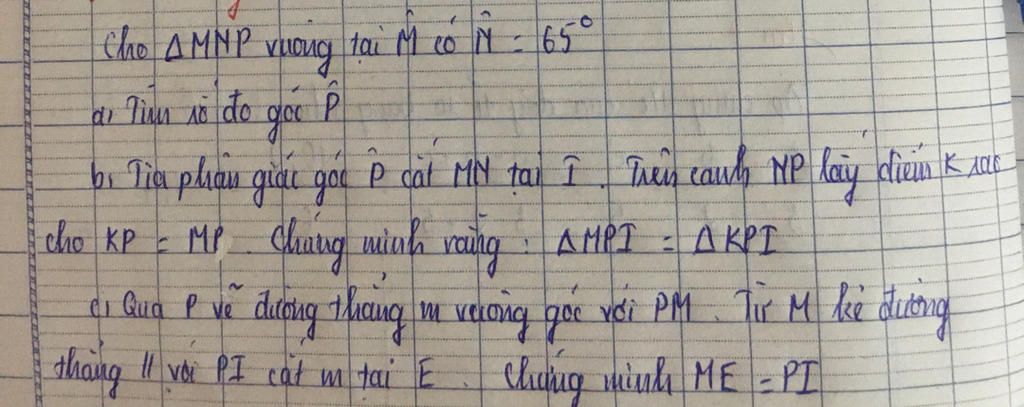 Cho ΔMNP vuông tại M̂ có N̂ = 65°
a, Tìm số đo góc P̂
b, Tia phân giác góc P̂ cắt MN tại I. Trên cạnh NP lấy điểm K sao
cho KP = MP. Chứng minh rằng: ΔMPI = ΔKPI
c, Qua P vẽ đường thẳng m vuông góc với PM. Từ M kẻ đường
thẳng // với PI cắt m tại E. Chứng minh ME = PI